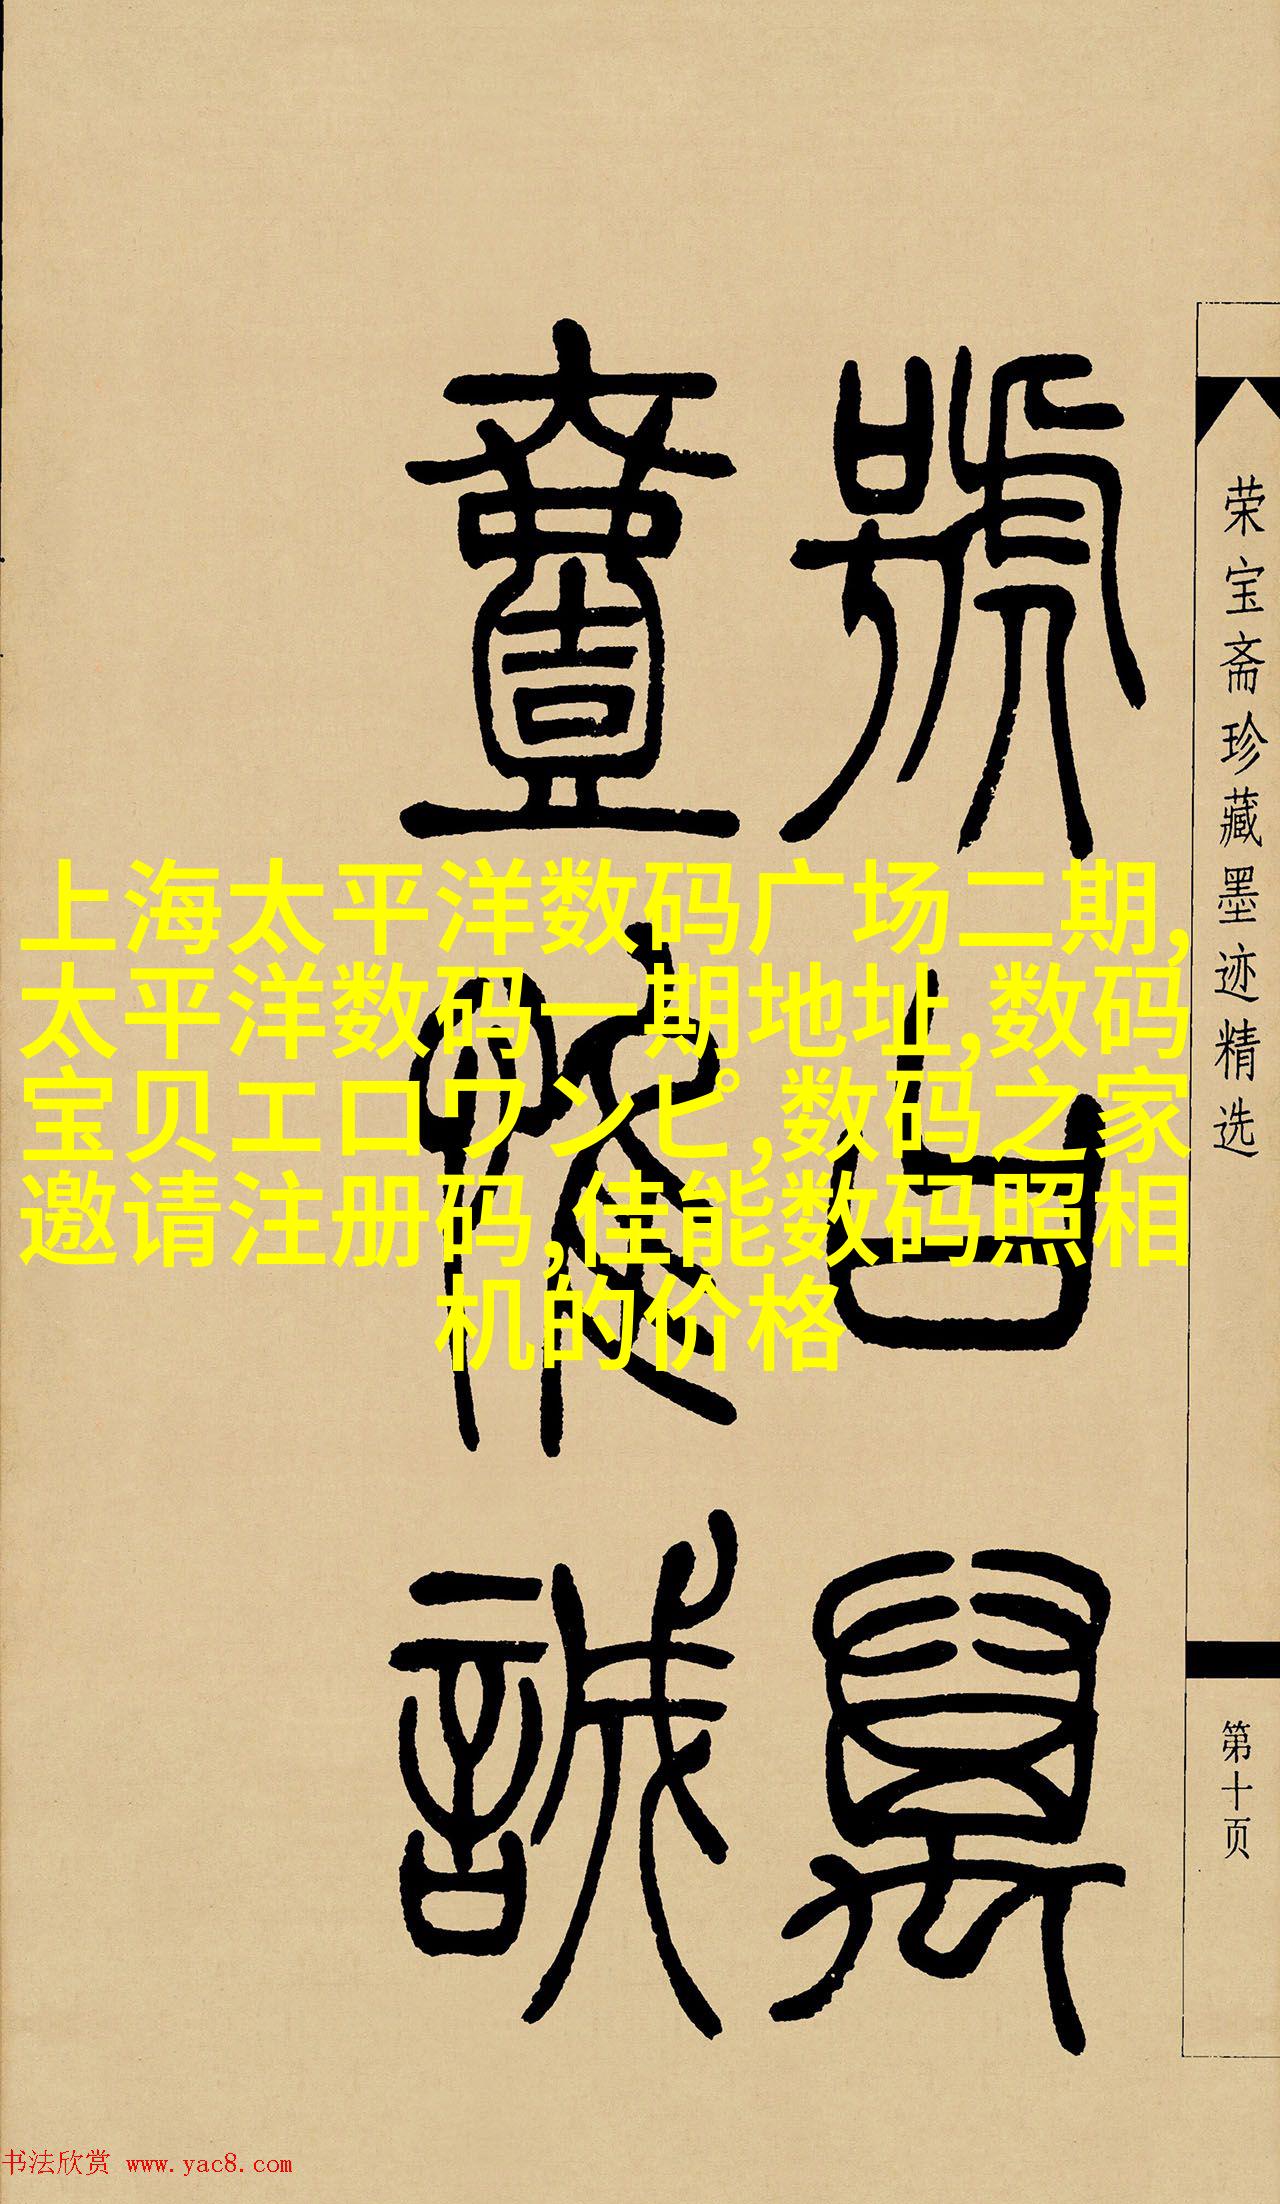 荣宝斋珍藏墨迹精选
第十页
號
壹 誠
上海太平洋数码广场二期,
太平洋数码一期地址,数码
宝贝エロワンピ,数码之家
邀请注册码,佳能数码照相
机的价格
书法欣赏 www.yac8.com